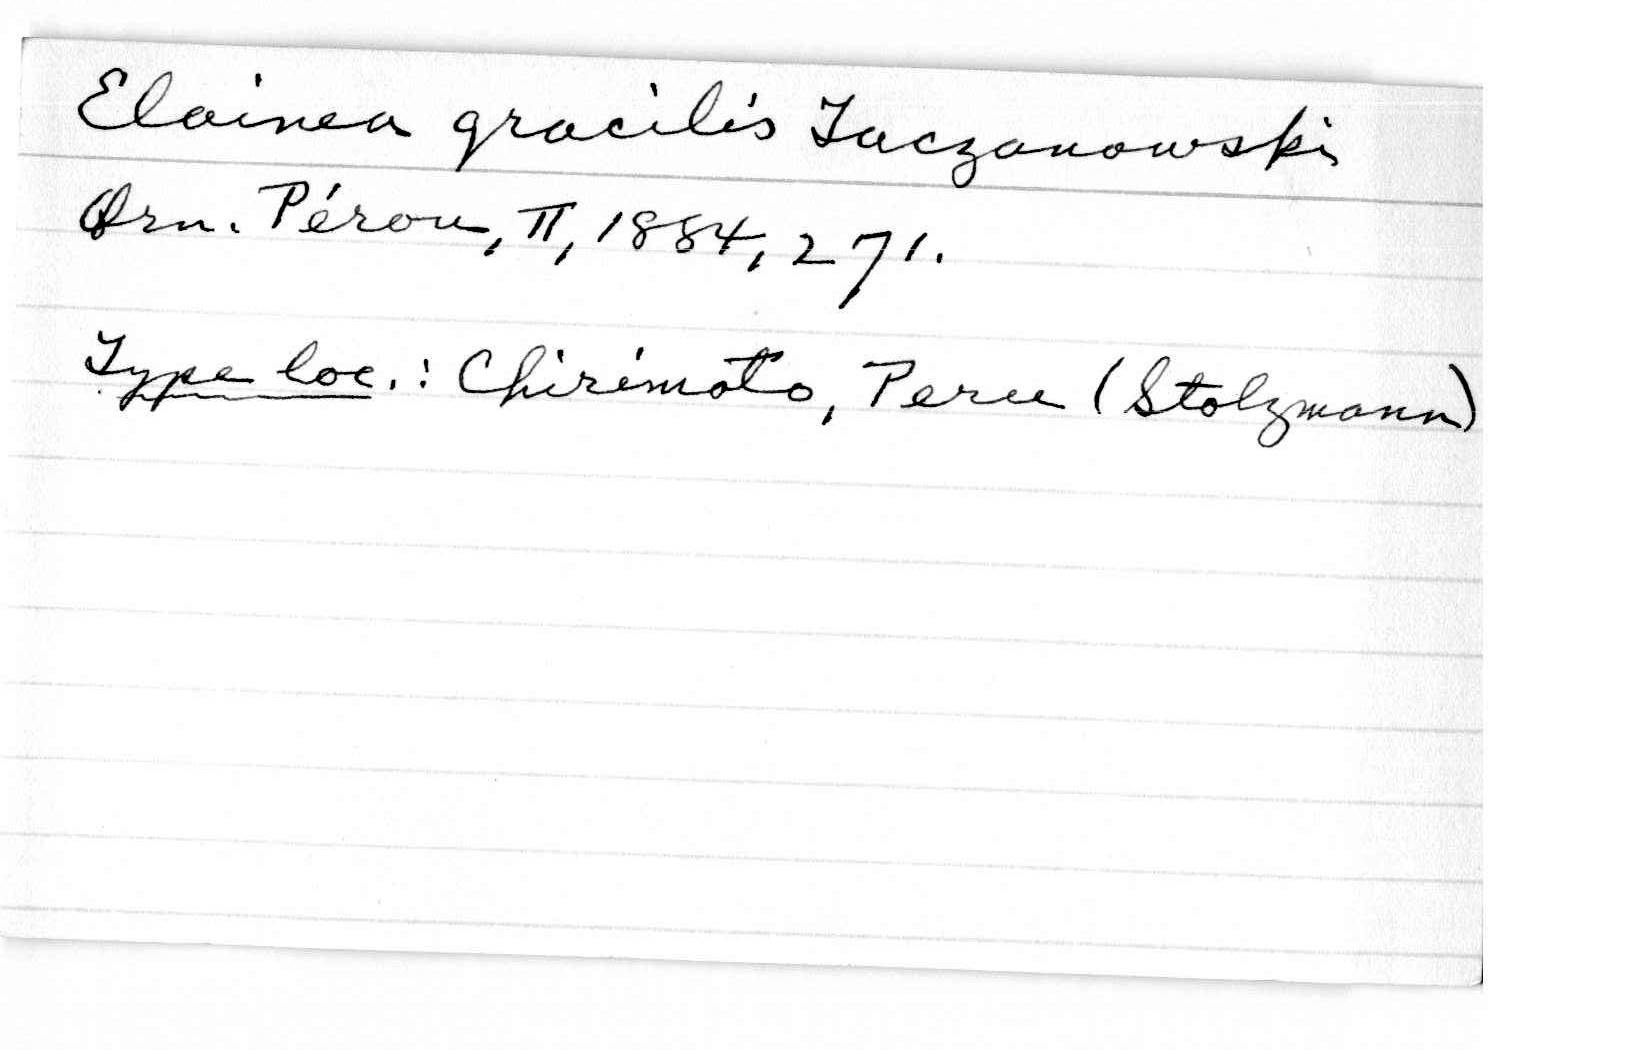 Elainea gracilis Taczanowski
Orn. Pérou, II, 1884, 271.
Type loc.: Chirimoto, Peru (Stolzmann)